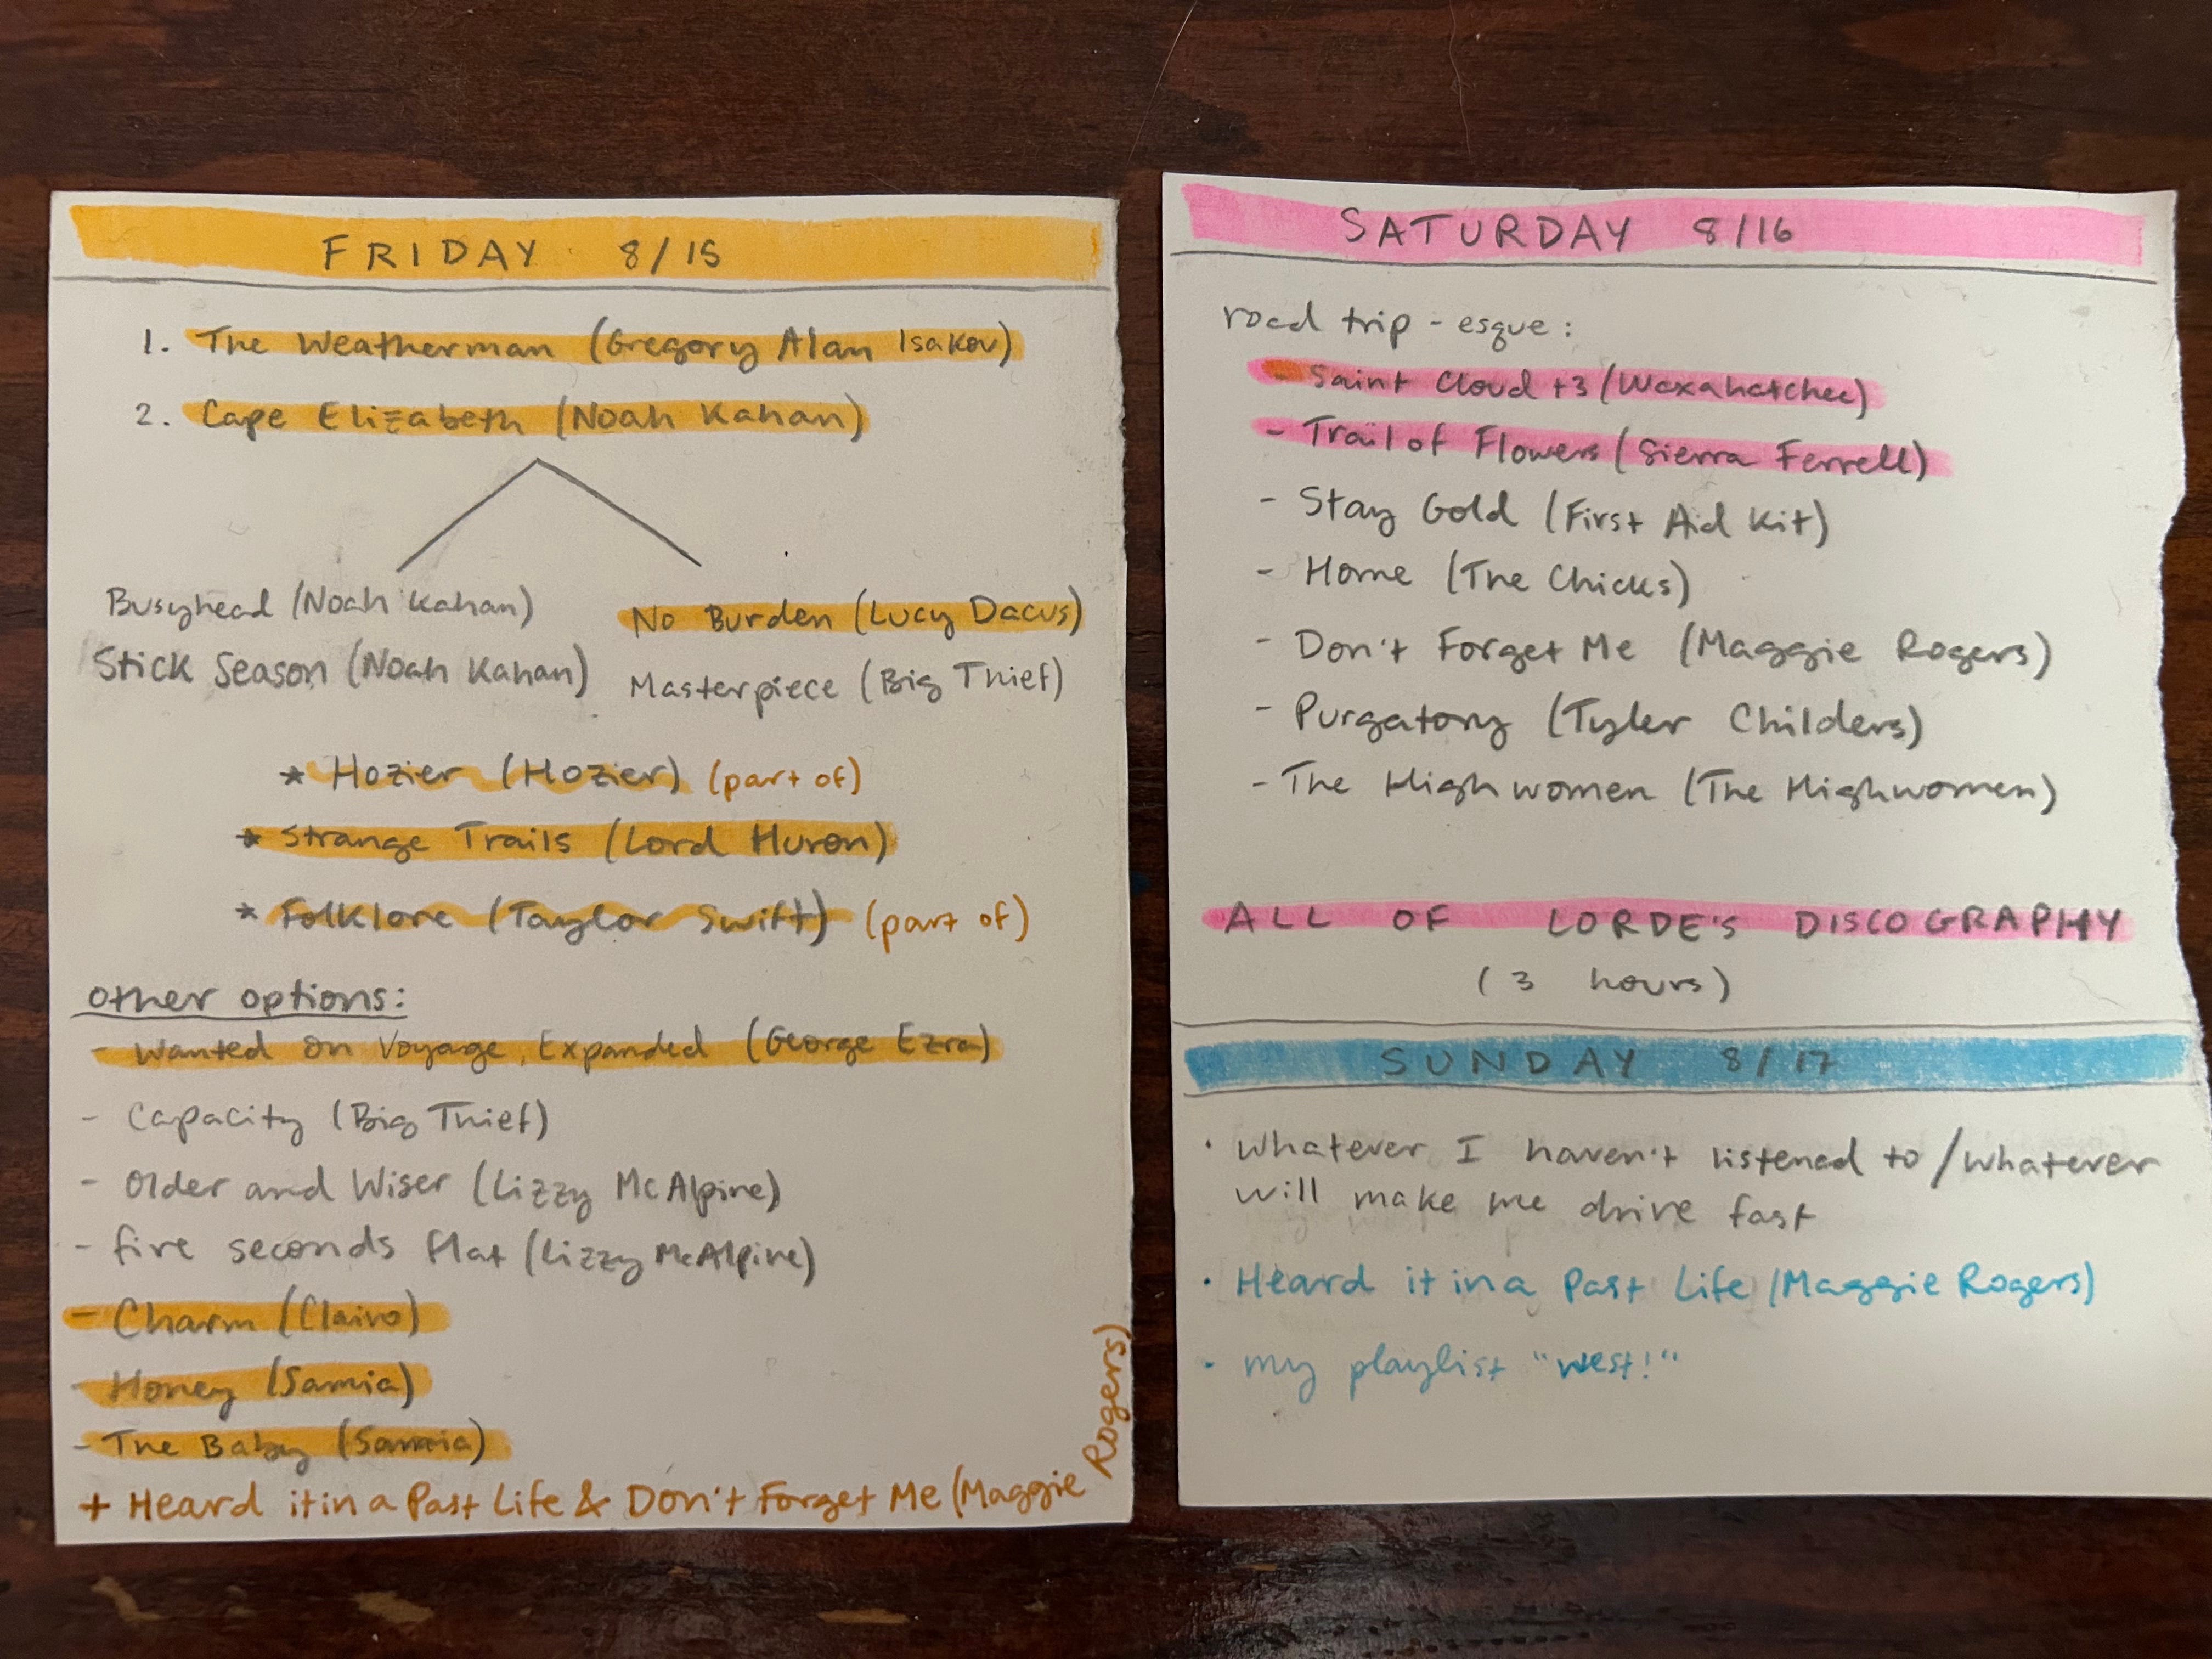 FRIDAY 8/15
1. The Weatherman (Gregory Alan Isakov)
2. Cape Elizabeth (Noah Kahan)
Busyhead (Noah Kahan)
Stick Season (Noah Kahan)
No Burden (Lucy Dacus)
Masterpiece (Big Thief)
* Hozier (Hozier) (part of)
* Strange Trails (Lord Huron)
* Folklore (Taylor Swift) (part of)
other options:
- Wanted on Voyage, Expanded (George Ezra)
- Capacity (Big Thief)
- Older and Wiser (Lizzy McAlpine)
- five seconds flat (Lizzy McAlpine)
- Charm (Clairo)
- Honey (Samia)
- The Baby (Samia)
+ Heard it in a Past Life & Don't Forget Me (Maggie Rogers)
SATURDAY 8/16
road trip-esque:
- Saint Cloud +3 (Waxahatchee)
- Trail of Flowers (Sierra Ferrell)
- Stay Gold (First Aid Kit)
- Home (The Chicks)
- Don't Forget Me (Maggie Rogers)
- Purgatory (Tyler Childers)
- The Highwomen (The Highwomen)
ALL OF LORDE'S DISCOGRAPHY
(3 hours)
SUNDAY 8/17
· whatever I haven't listened to/whatever
will make me drive fast
· Heard it in a Past Life (Maggie Rogers)
· my playlist "west!"